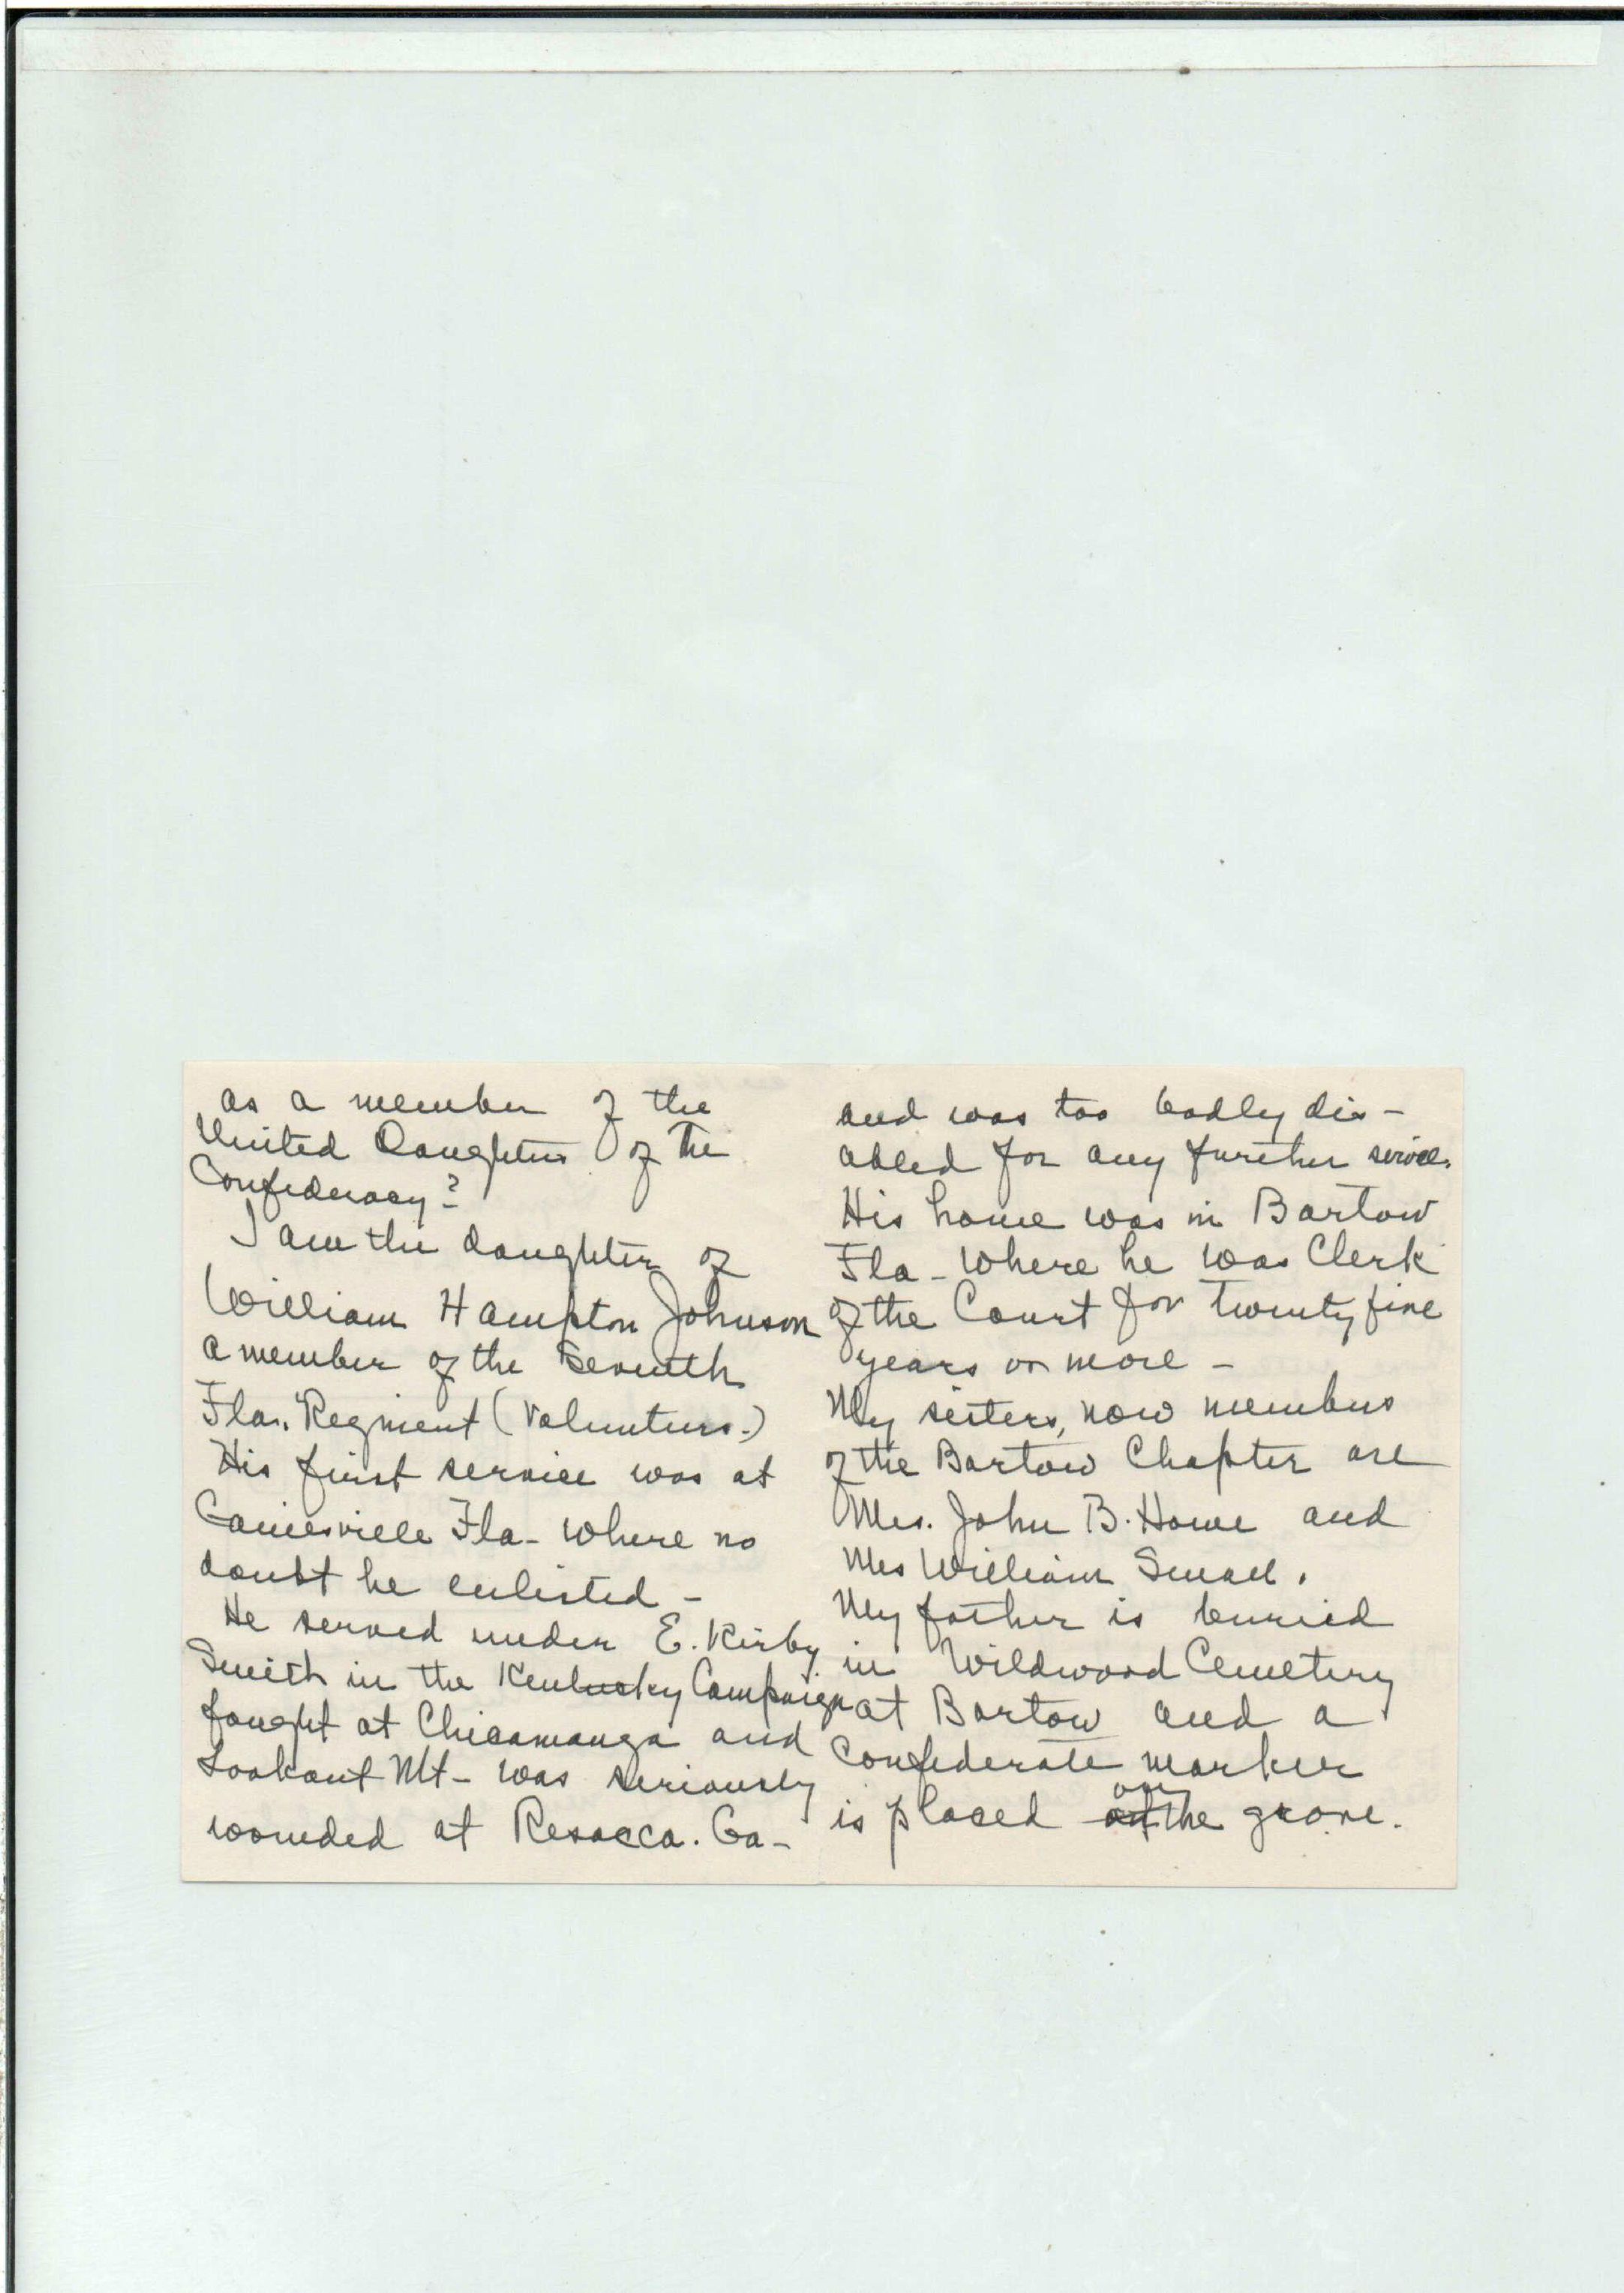 as a member of the
United Daughters of the
Confederacy?
I am the daughter of
William Hampton Johnson
a member of the Seventh
Fla. Regiment (Volunteers.)
His first service was at
Gainesville Fla - where no
doubt he enlisted -
He served under E. Kirby
Smith in the Kentucky Campaign
fought at Chicamauga and
Lookout Mt - was seriously
wounded at Resacca. Ga -
and was too badly dis-
abled for any further service.
His home was in Bartow
Fla - where he was Clerk
of the Court for twenty five
years or more -
My sisters, now members
of the Bartow Chapter are
Mrs. John B. Howe and
Mrs William Small.
My father is buried
in Wildwood Cemetery
at Bartow and a
Confederate marker
is placed on the grave.